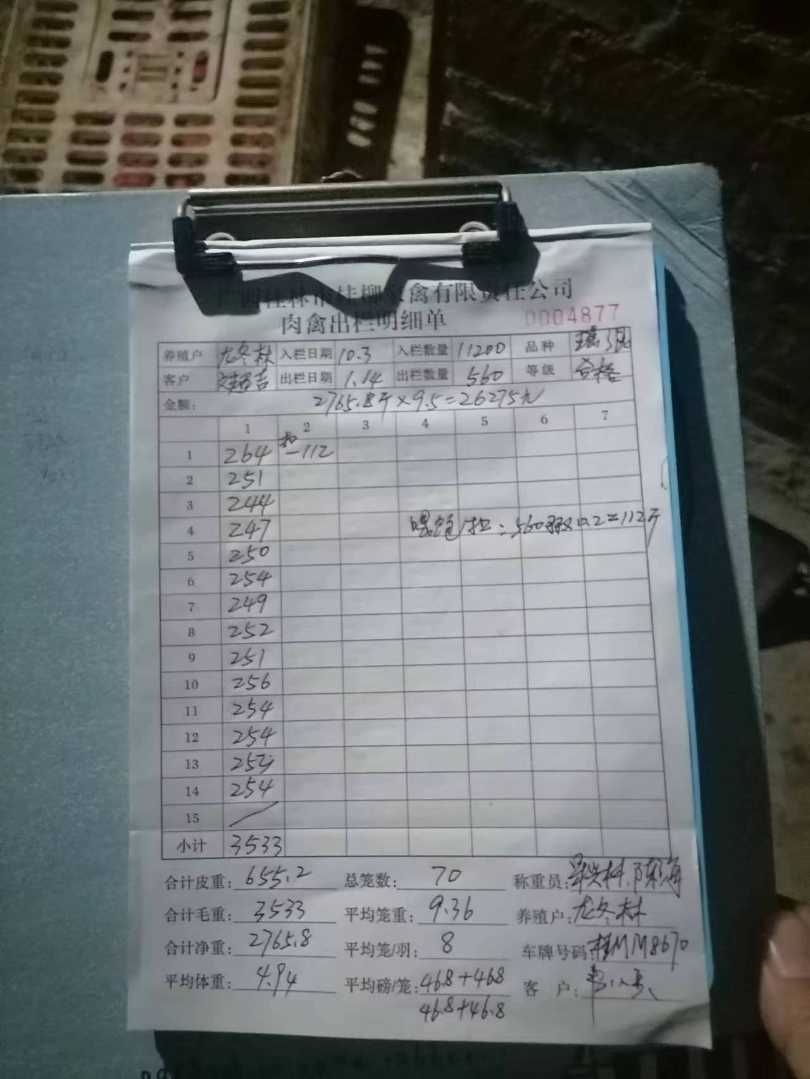 广西桂林市桂柳家禽有限责任公司
肉禽出栏明细单 0004877
养殖户 龙冬林 入栏日期 10.3 入栏数量 11200 品种
客户 出栏日期 1.14 出栏数量 560 等级 合格
金额: 2765.8斤×9.5=26275元
1 2 3 4 5 6 7
1 264 扣-112
2 251
3 244
4 247 喂饱扣:560羽×0.2=112斤
5 250
6 254
7 249
8 252
9 251
10 256
11 254
12 254
13 253
14 254
15 /
小计 3533
合计皮重: 655.2 总笼数: 70 称重员:
合计毛重: 3533 平均笼重: 9.36 养殖户: 龙冬林
合计净重: 2765.8 平均笼/羽: 8 车牌号码 桂MM8670
平均体重: 4.94 平均磅/笼: 46.8+46.8 客户:
46.8+46.8